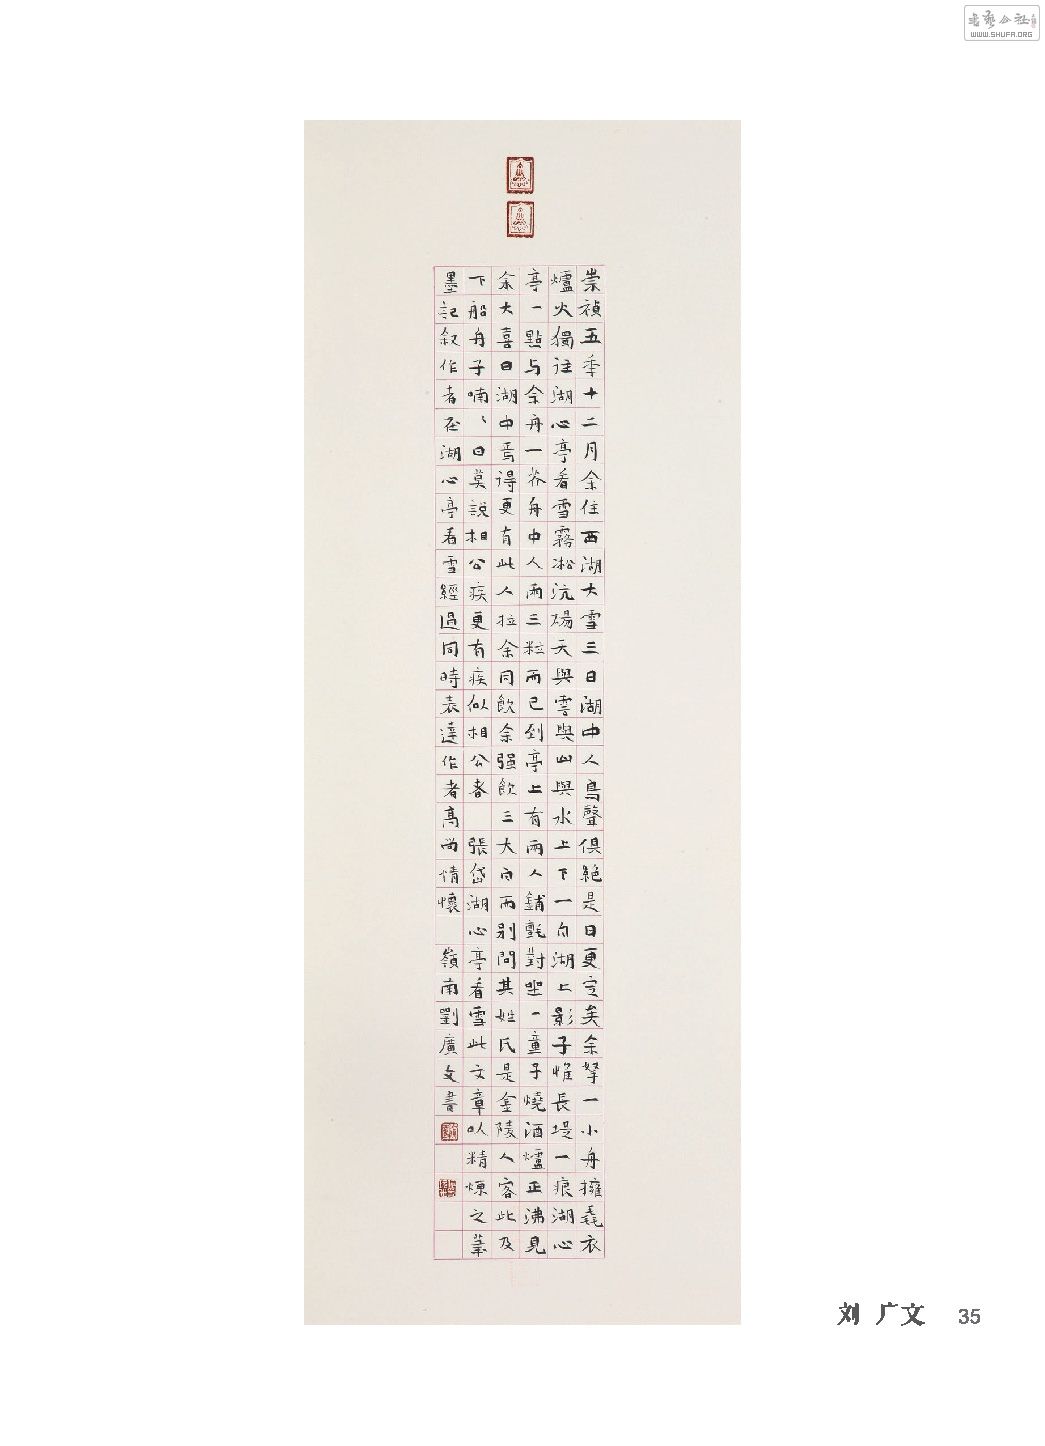 崇禎五秊十二月余住西湖大雪三日湖中人鳥聲俱絕是日更定矣余拏一小舟擁毳衣
爐火獨往湖心亭看雪霧凇沆碭天與雲與山與水上下一白湖上影子惟長堤一痕湖心
亭一點与余舟一芥舟中人兩三粒而已到亭上有兩人鋪氈對坐一童子燒酒爐正沸見
余大喜曰湖中焉得更有此人拉余同飲余强飲三大白而别問其姓氏是金陵人客此及
下船舟子喃、曰莫說相公痴更有痴似相公者 張岱湖心亭看雪此文章以精煉之筆
墨記叙作者在湖心亭看雪經過同時表達作者高尚情懷 嶺南劉廣文書
刘 广文 35
WWW.SHUFA.ORG